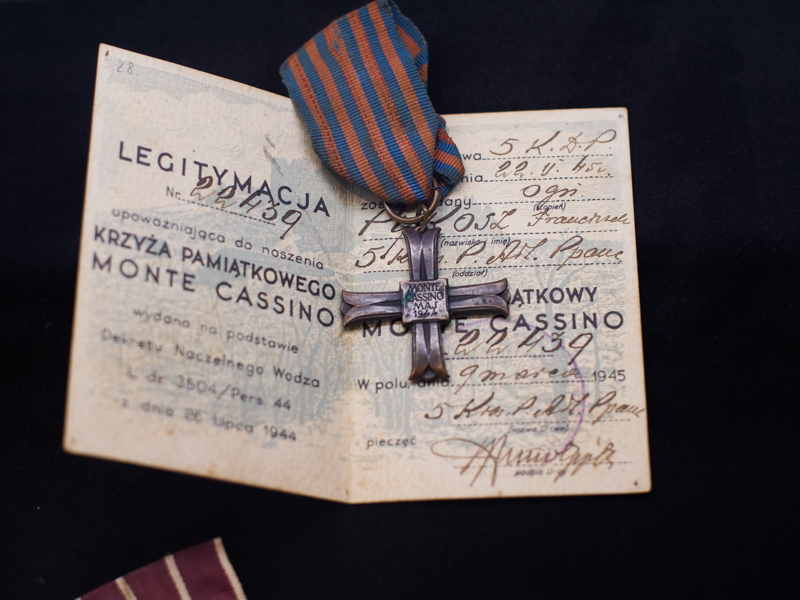 28.
LEGITYMACJA
Nr. 22439
upoważniająca do noszenia
KRZYŻA PAMIĄTKOWEGO
MONTE CASSINO
wydana na podstawie
Dekretu Naczelnego Wodza
L. dz. 3504/Pers. 44
z dnia 26 lipca 1944
wa 5 K.D.P.
nia 22.V.45r.
dany ogn
(stopień)
Franciszek
(nazwisko i imię)
5 P. Art. Ppanc
(oddział)
MONTE
CASSINO
MAJ
1944
ĄTKOWY
MONTE CASSINO
22439
W polu, dnia 9 marca 1945
5 Kres P. Art. Ppanc
pieczęć